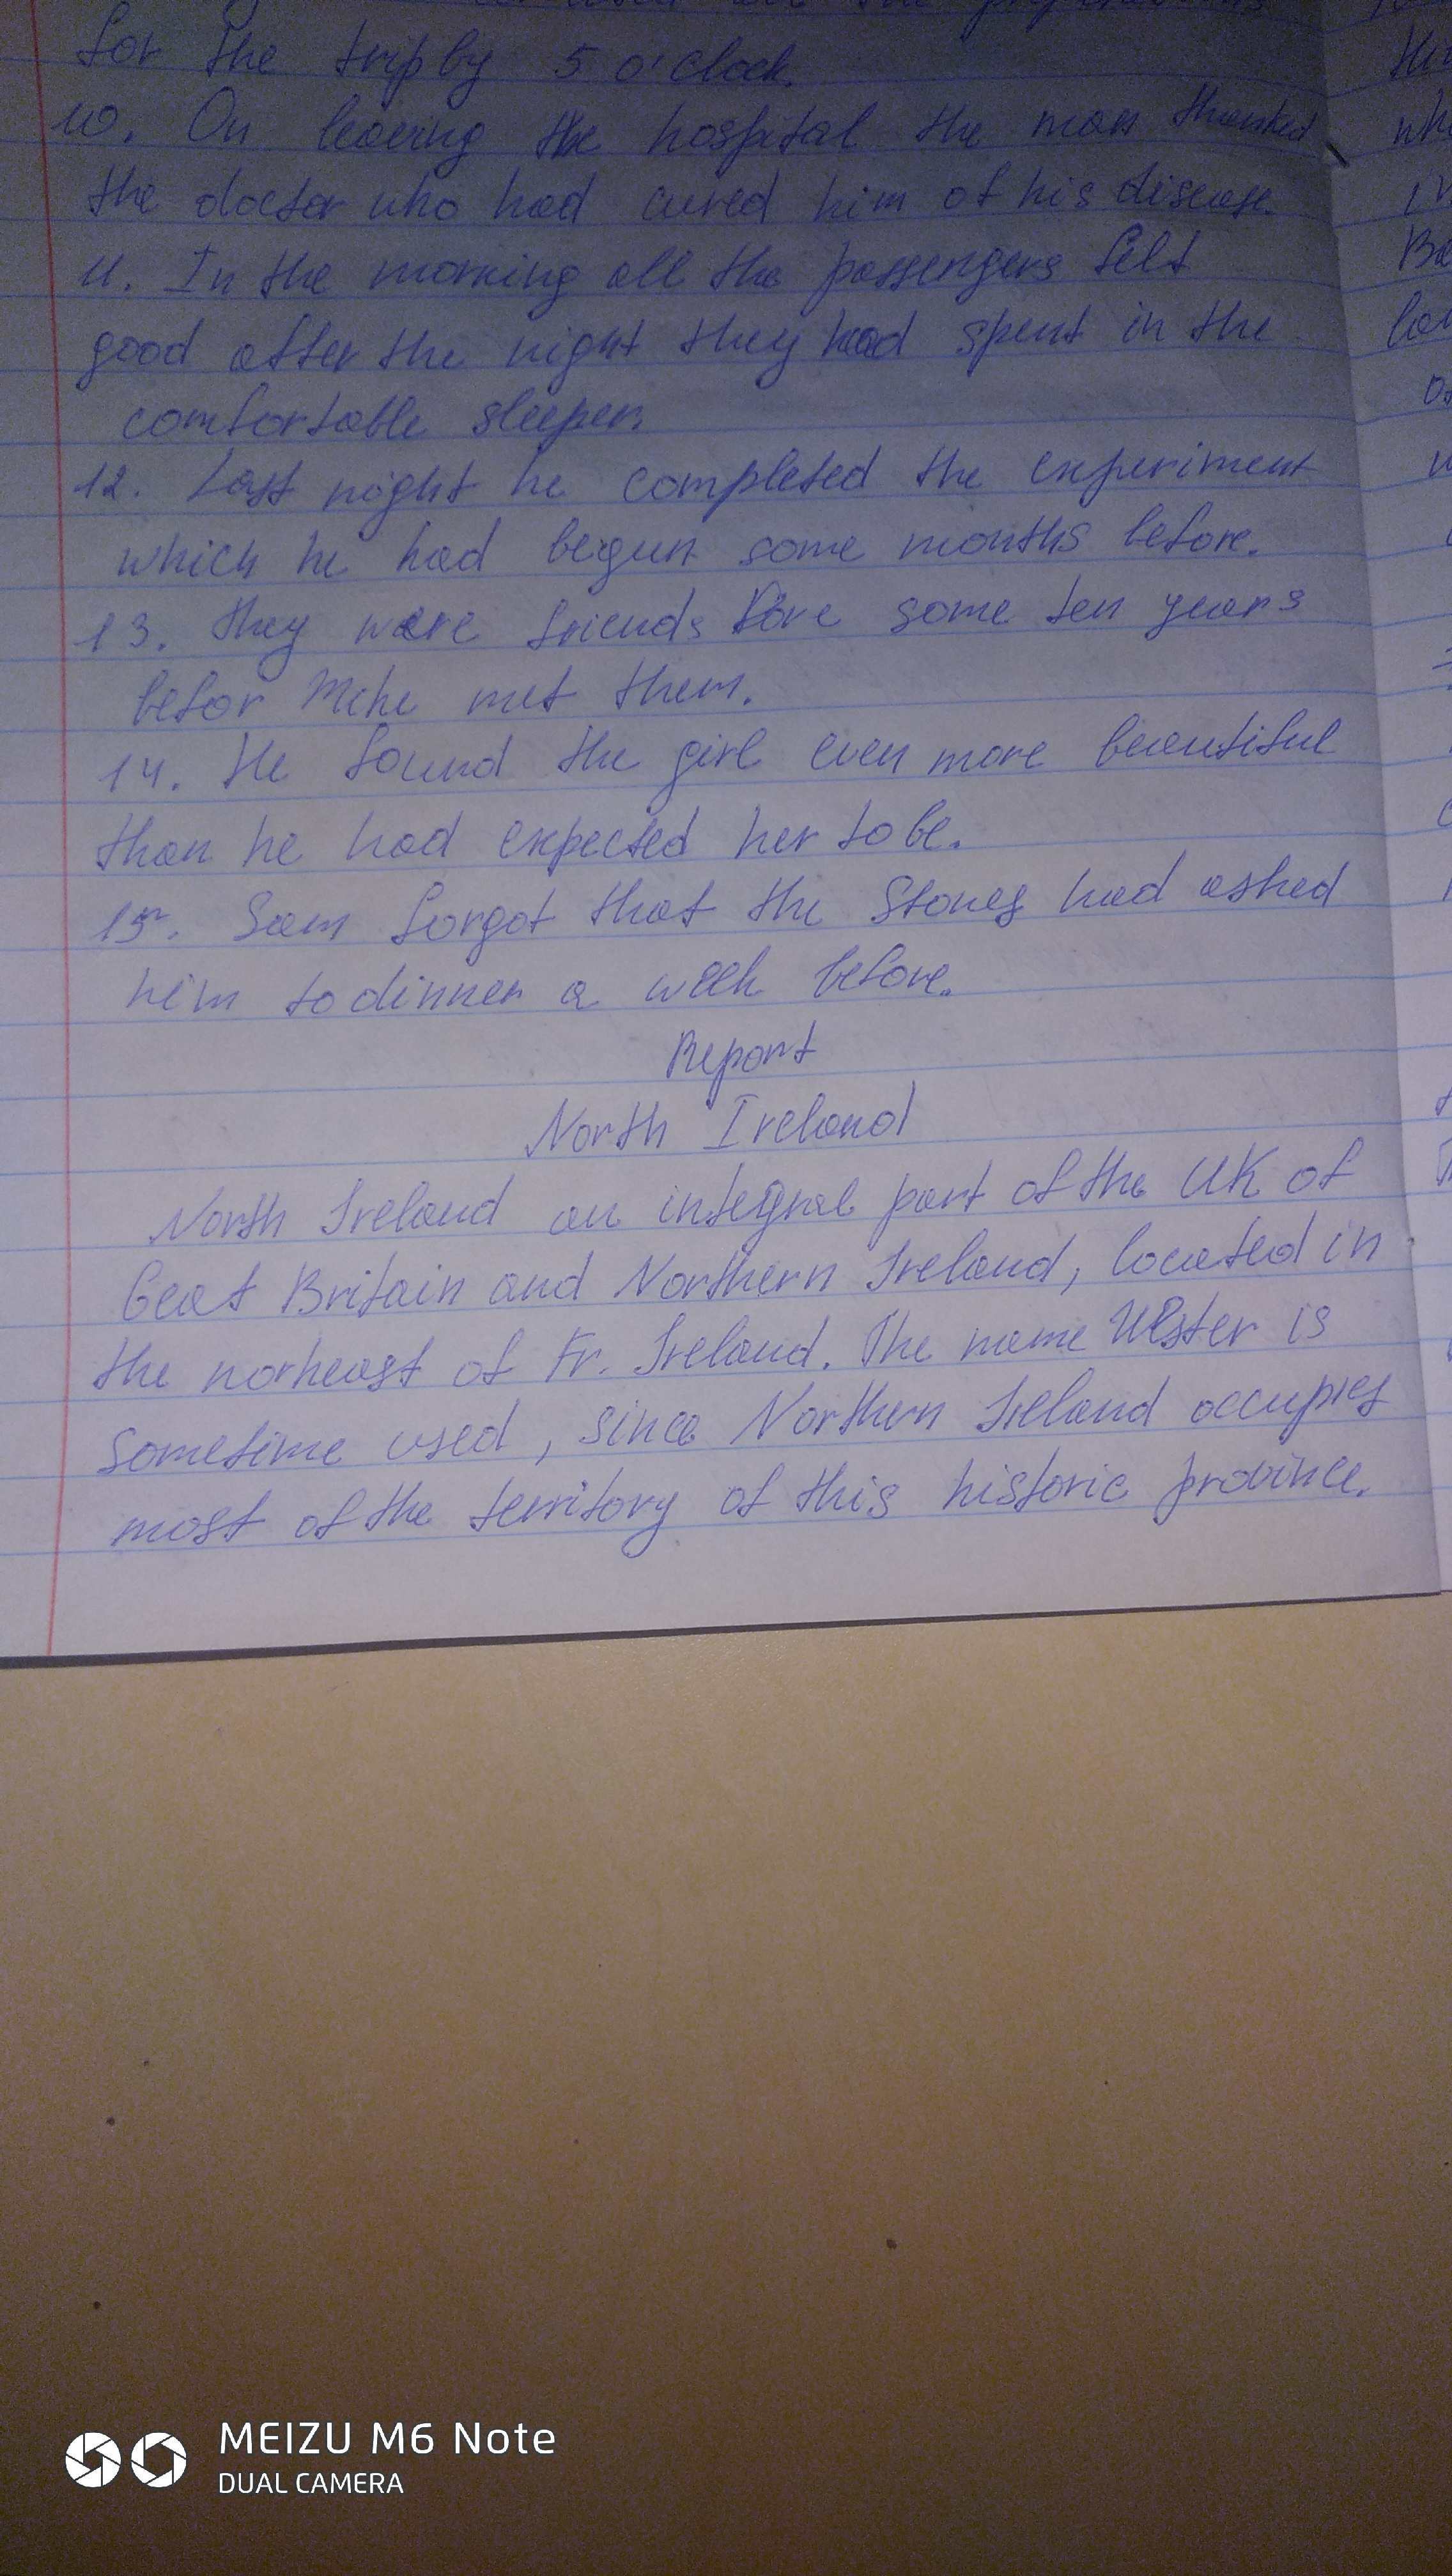 for the trip by 5 o'clock.
10. On leaving the hospital the man thanked
the doctor who had cured him of his disease.
11. In the morning all the passengers felt
good after the night they had spent in the
comfortable sleeper.
12. Last night he completed the experiment
which he had begun some months before.
13. They were friends some ten years
befor met them.
14. He found the girl even more beautiful
than he had expected her to be.
15. Sam forgot that the Stones had asked
him to dinner a week before.
Report
North Ireland
North Ireland an integral part of the UK of
Geat Britain and Northern Ireland, located in
the norheast of Fr. Ireland. The name Ulster is
sometime used, since Northern Ireland occupies
most of the territory of this historic province.
MEIZU M6 Note
DUAL CAMERA